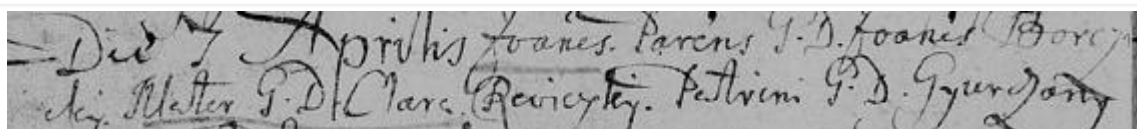 Die 7 Aprilis Joanes. Parens G. D. Joanis Borcz
kij. Mater G. D. Clara. Reviczkij. Patrini G. D. Gyurczany